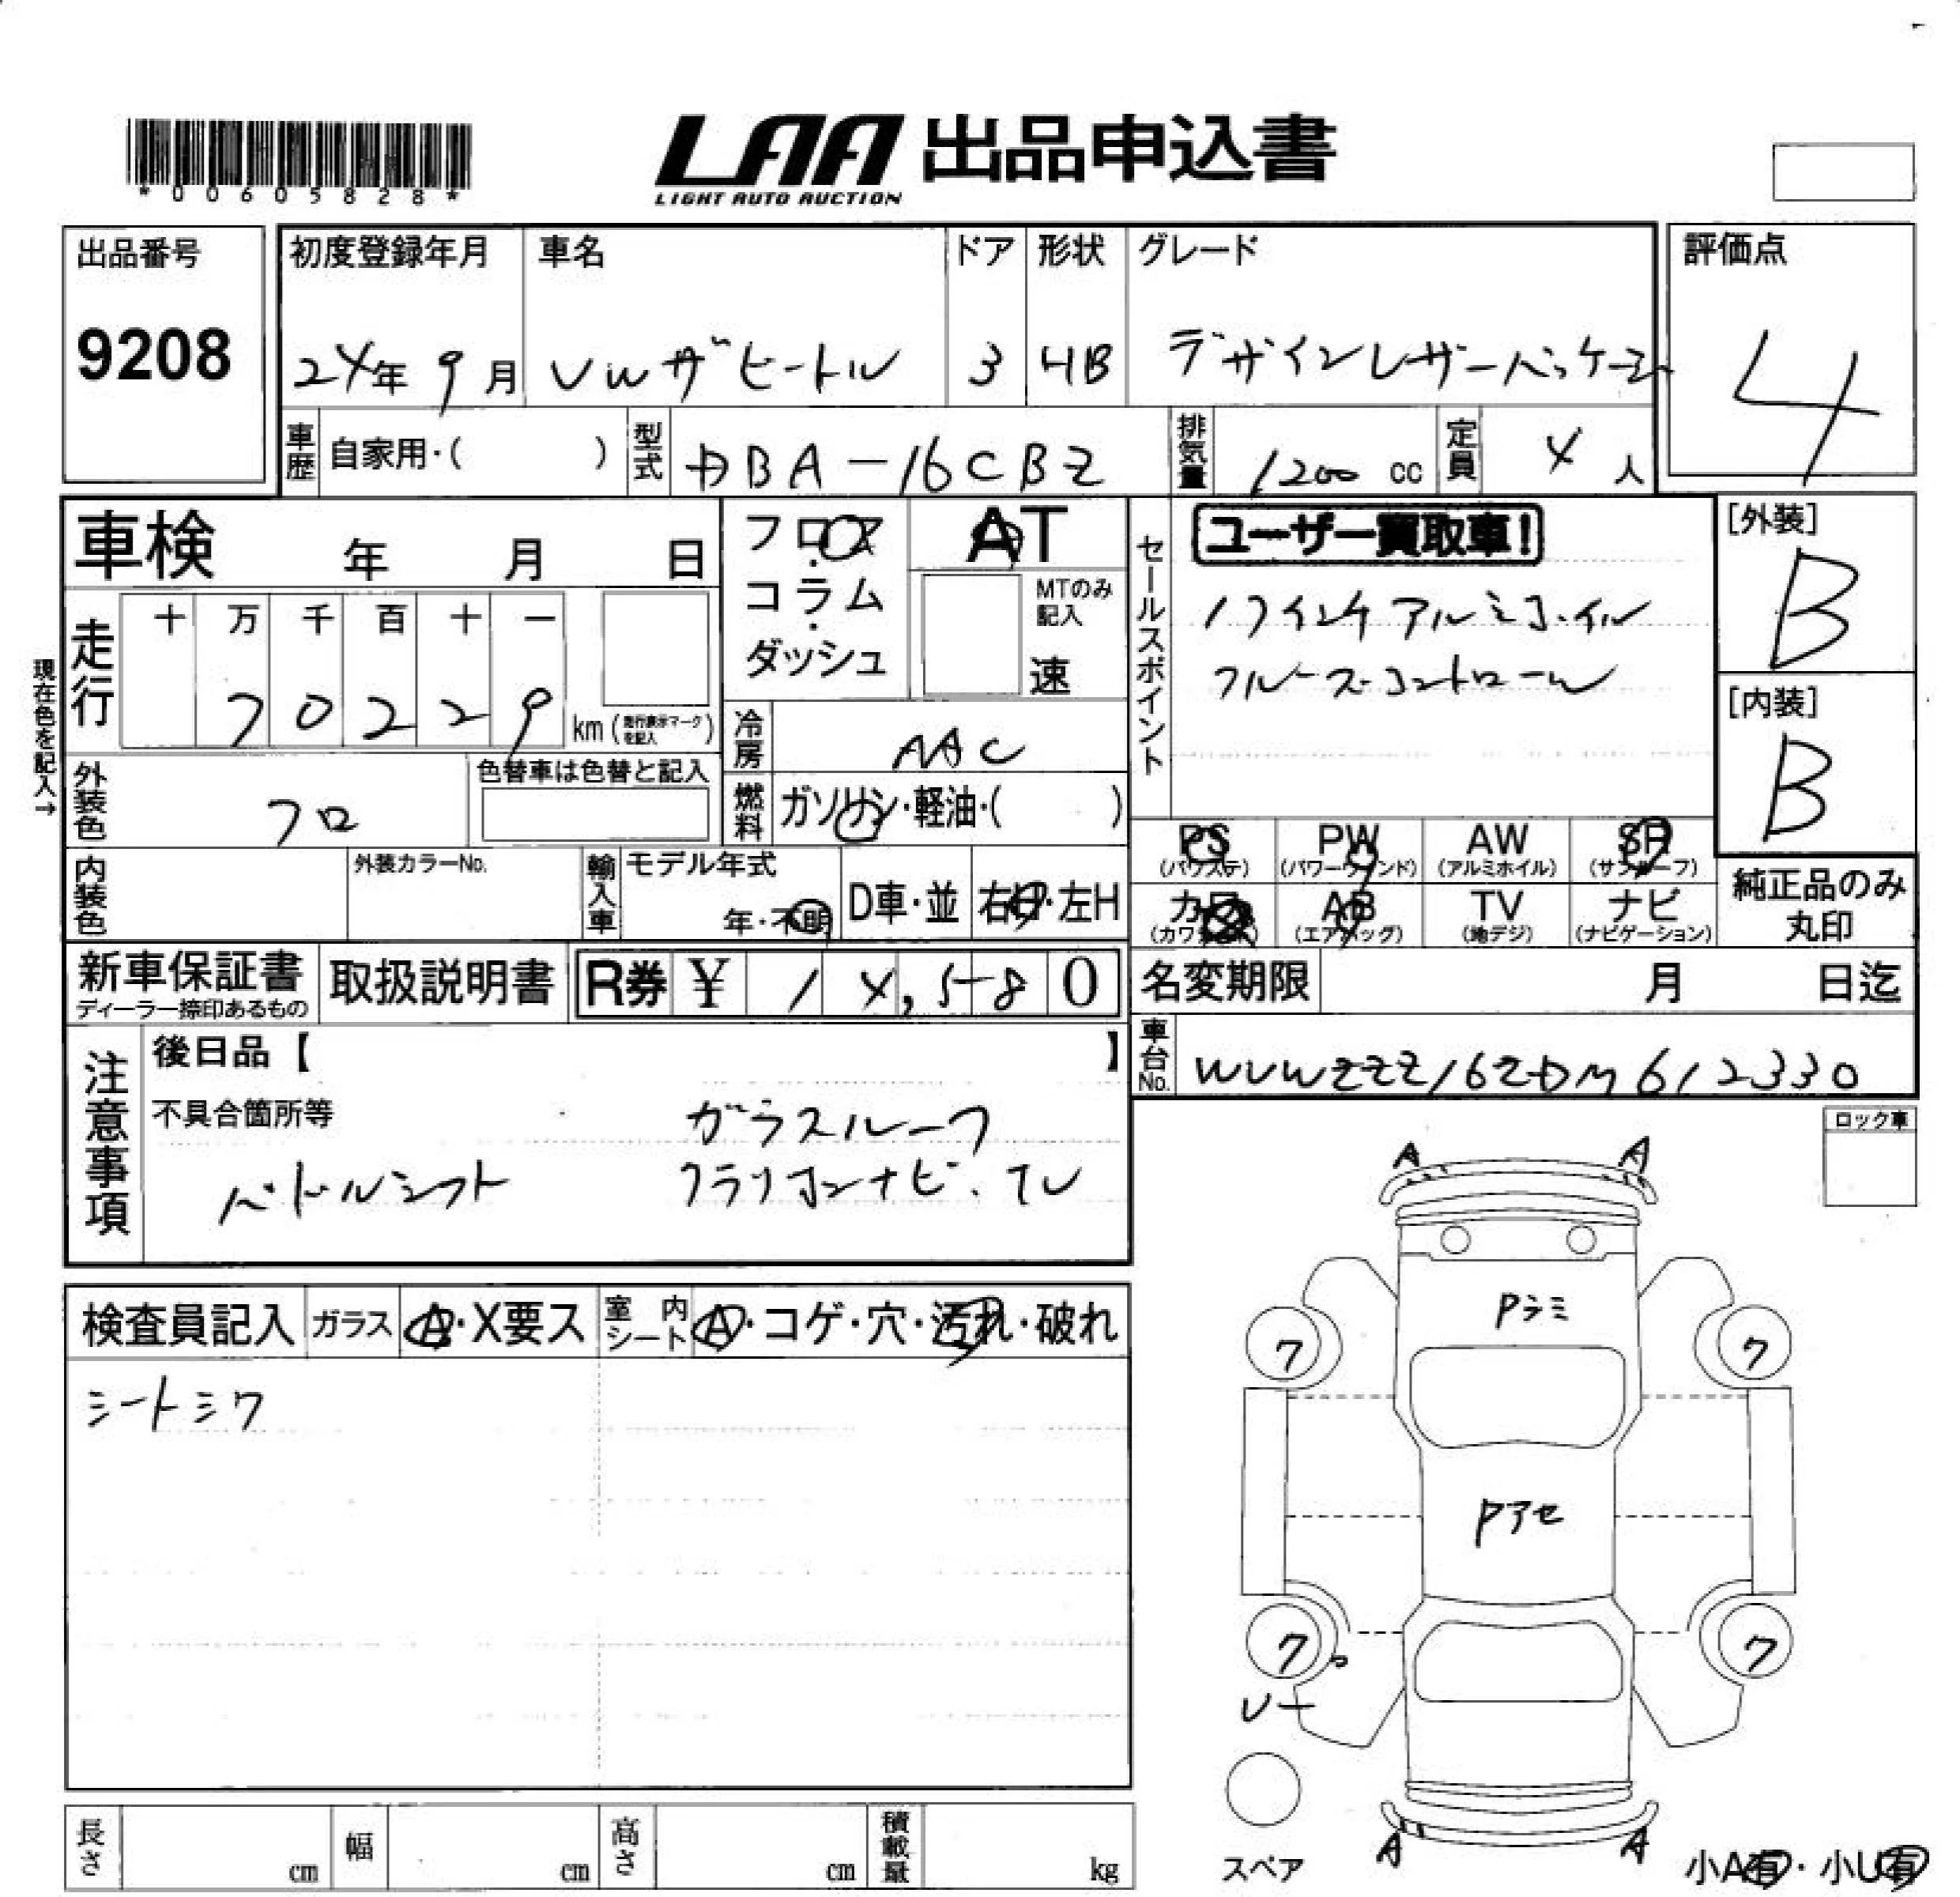 *00605828*
LAA 出品申込書
LIGHT AUTO AUCTION
出品番号
9208
初度登録年月
24年 9月
車名
VWザビートル
ドア
3
形状
HB
グレード
デザインレザーパッケージ
評価点
4
車歴
自家用・( )
型式
DBA-16CBZ
排気量
1200 cc
定員
4 人
車検 年 月 日
フロア
・
コラム
・
ダッシュ
AT
MTのみ
記入
速
セールスポイント
ユーザー買取車!
17インチアルミホイル
クルーズコントロール
[外装]
B
[内装]
B
現在色を記入→
走行
十 万 千 百 十 一
7 0 2 2 9
km (走行表示マークを記入)
冷房
AAC
外装色
クロ
色替車は色替と記入
燃料
ガソリン・軽油・( )
PS
(パワステ)
PW
(パワーウィンド)
AW
(アルミホイル)
SR
(サンルーフ)
内装色
外装カラーNo.
輸入車
モデル年式
年・不明
D車・並
右H・左H
カワ
(カワシート)
AB
(エアバッグ)
TV
(地デジ)
ナビ
(ナビゲーション)
純正品のみ
丸印
新車保証書
ディーラー捺印あるもの
取扱説明書
R券 ¥ 14,580
名変期限 月 日迄
車台No.
WVWZZZ16ZDM612330
注意事項
後日品【 】
不具合箇所等
ガラスルーフ
パドルシフト
クラリオンナビ.TV
ロック車
検査員記入
ガラス
A・X要ス
室内シート
A・コゲ・穴・汚れ・破れ
シートシワ
A A
Pシミ
ワ ワ
Pアセ
ワ ワ
A A
スペア
小A有・小U有
長さ cm
幅 cm
高さ cm
積載量 kg